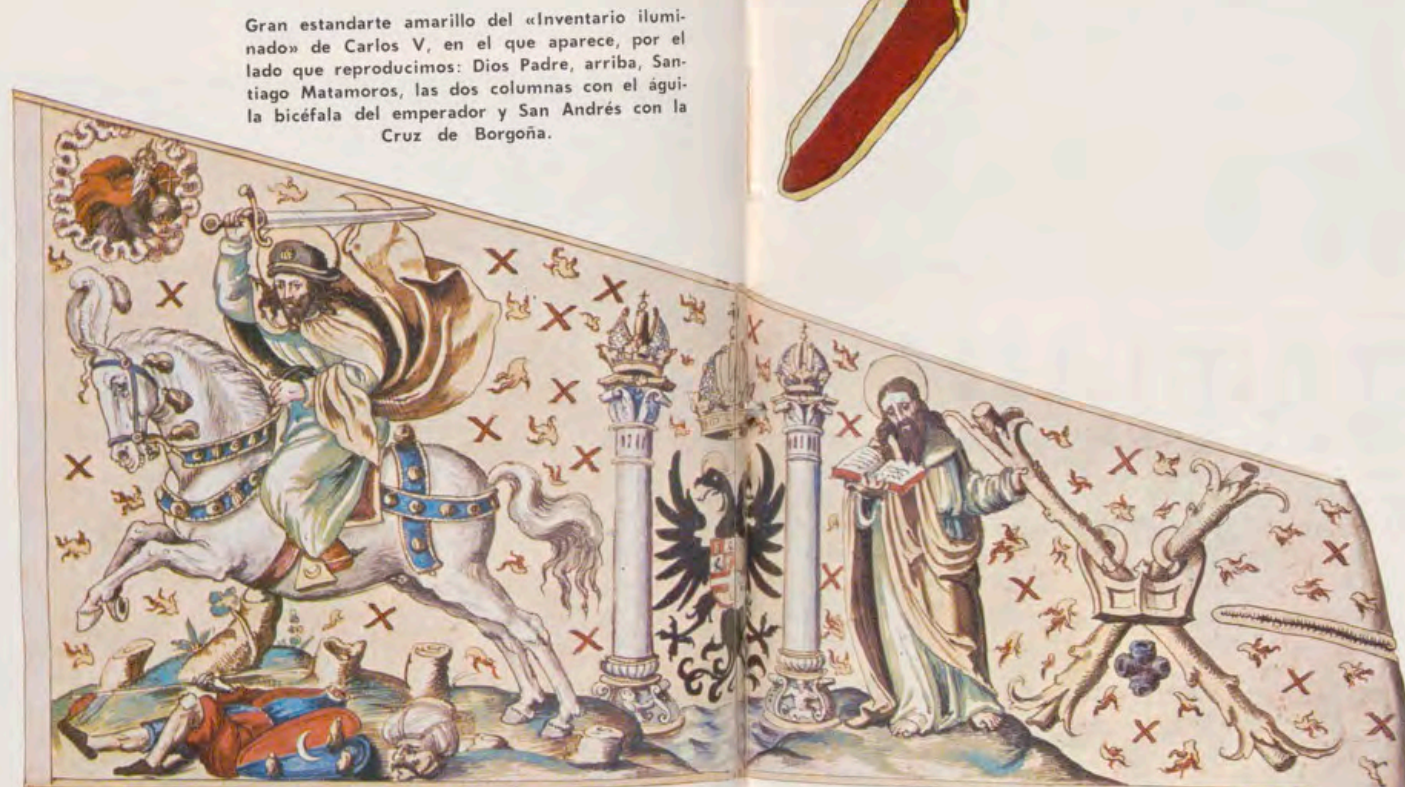 Gran estandarte amarillo del «Inventario ilumi-
nado» de Carlos V, en el que aparece, por el
lado que reproducimos: Dios Padre, arriba, San-
tiago Matamoros, las dos columnas con el águi-
la bicéfala del emperador y San Andrés con la
Cruz de Borgoña.